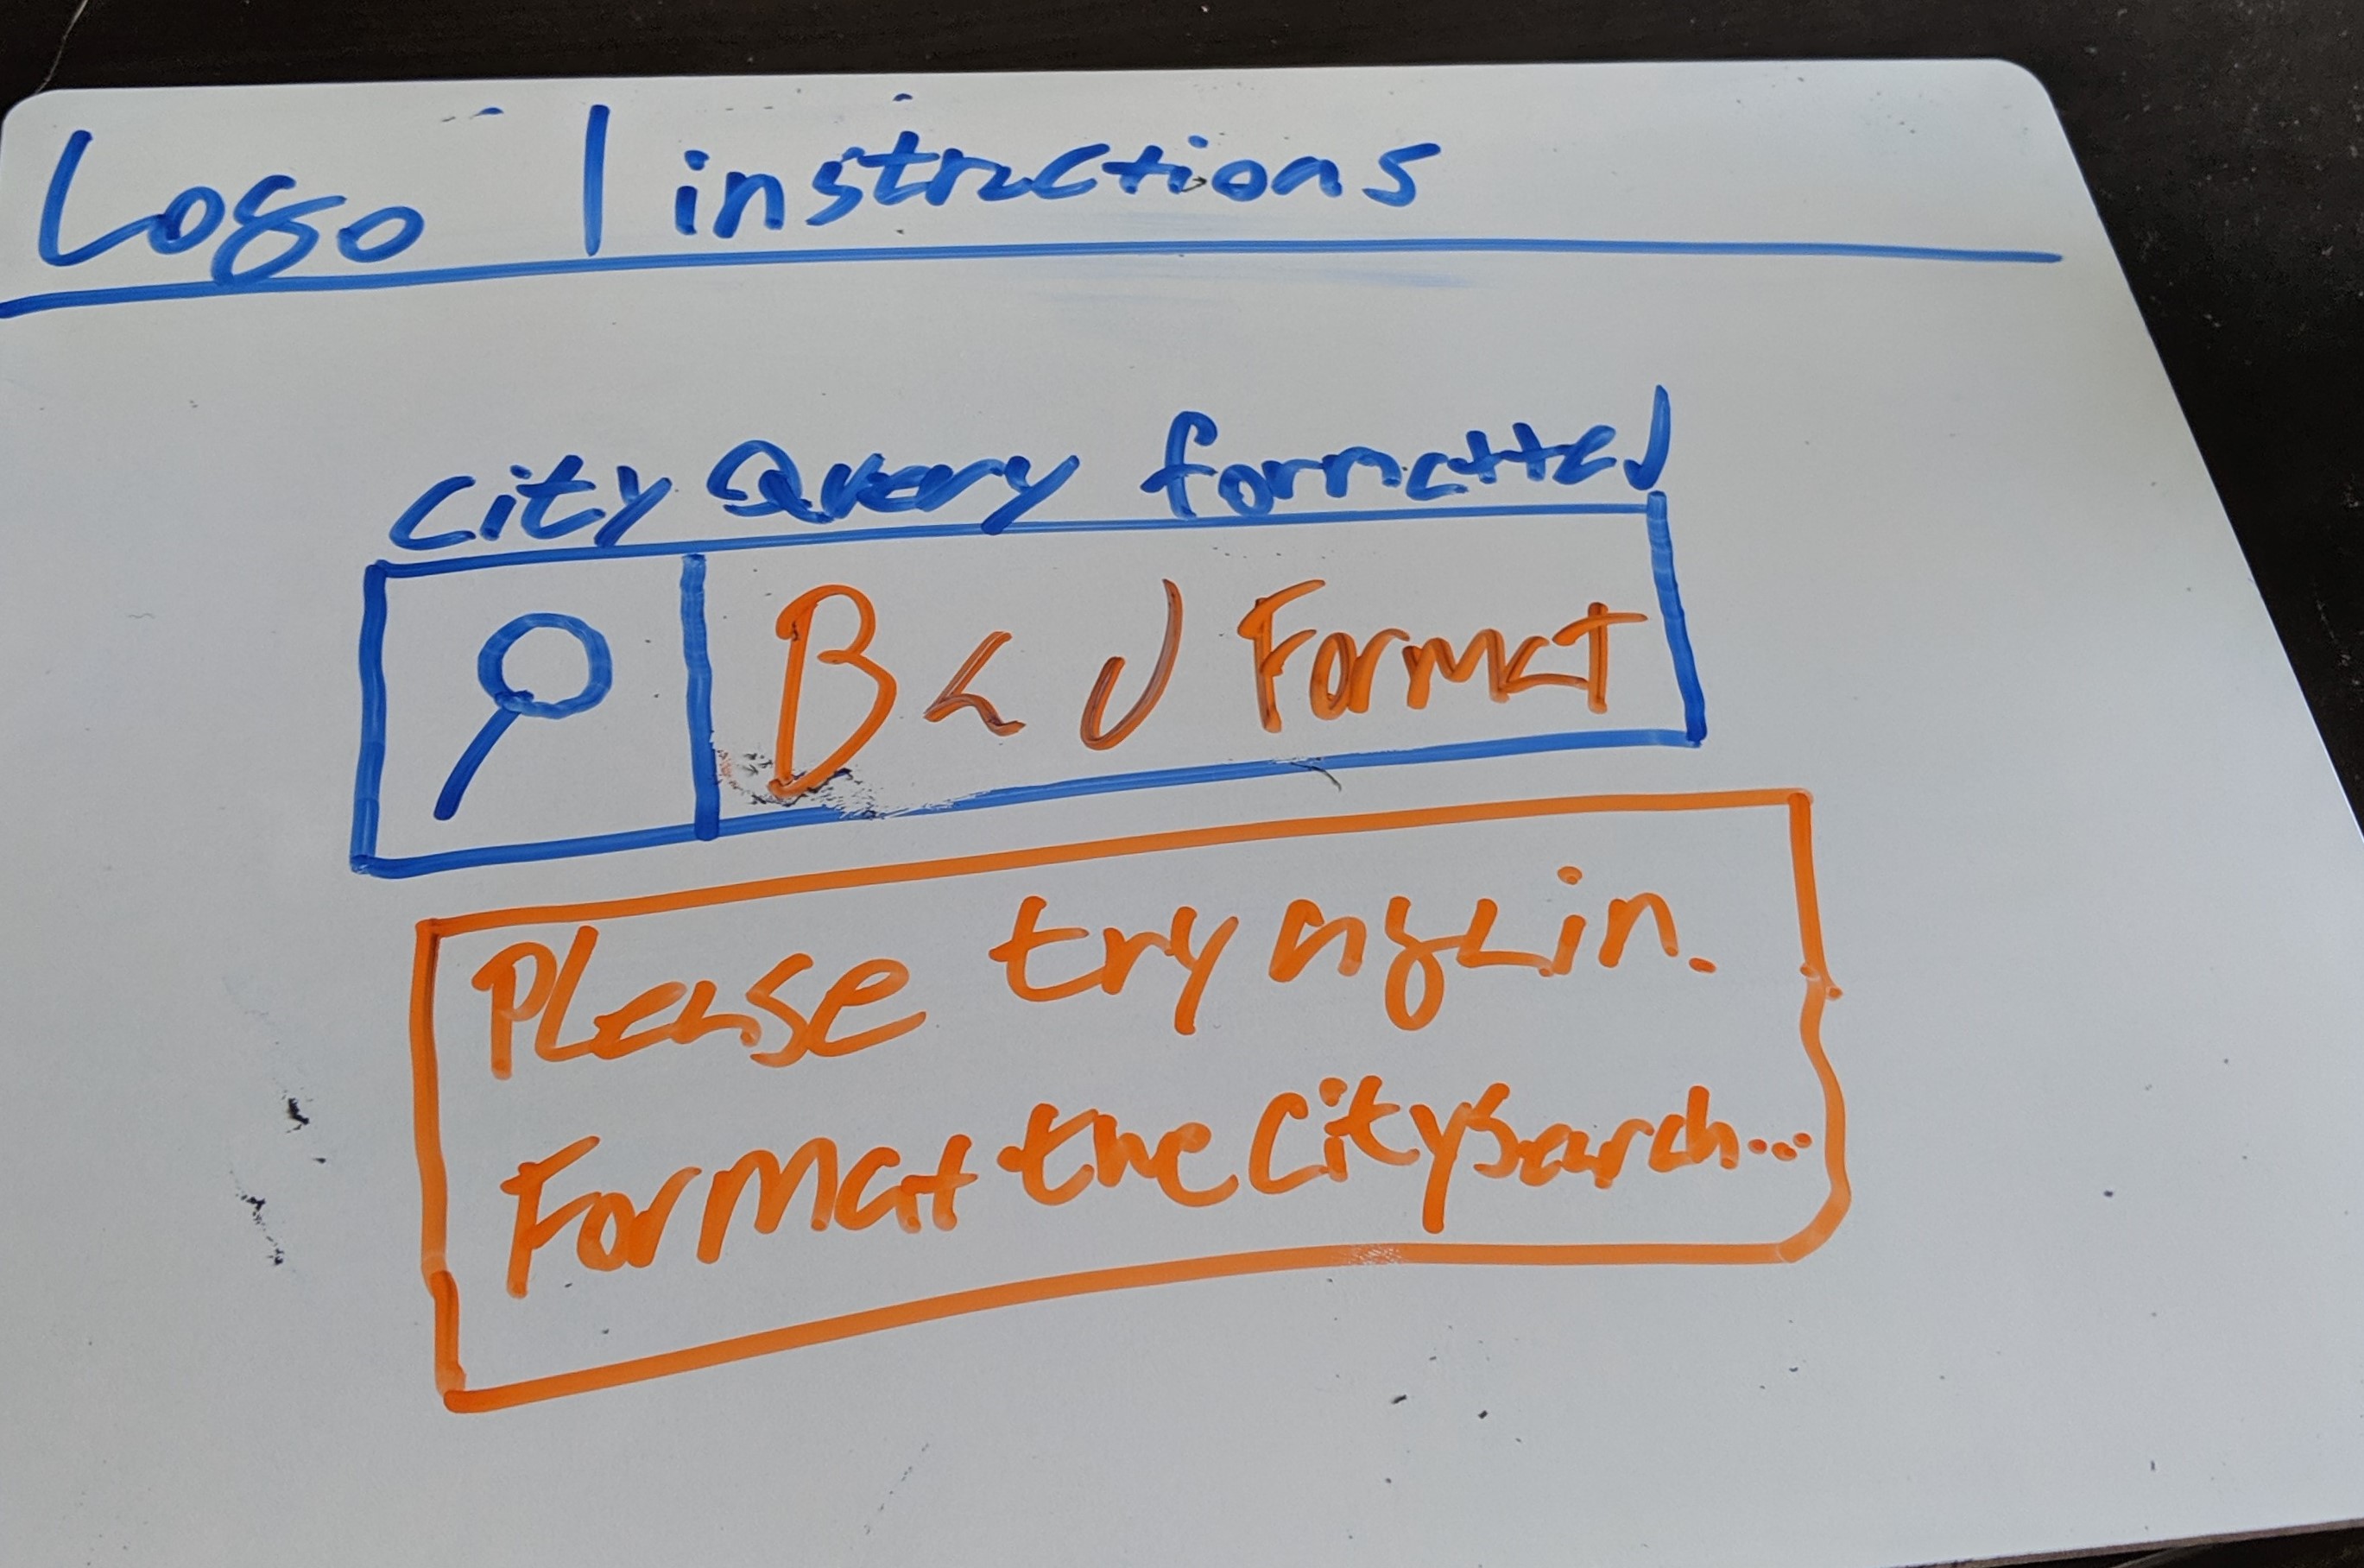 Logo | instructions
city Query formatted
B < U Format
Please try again.
Format the City Sarch...